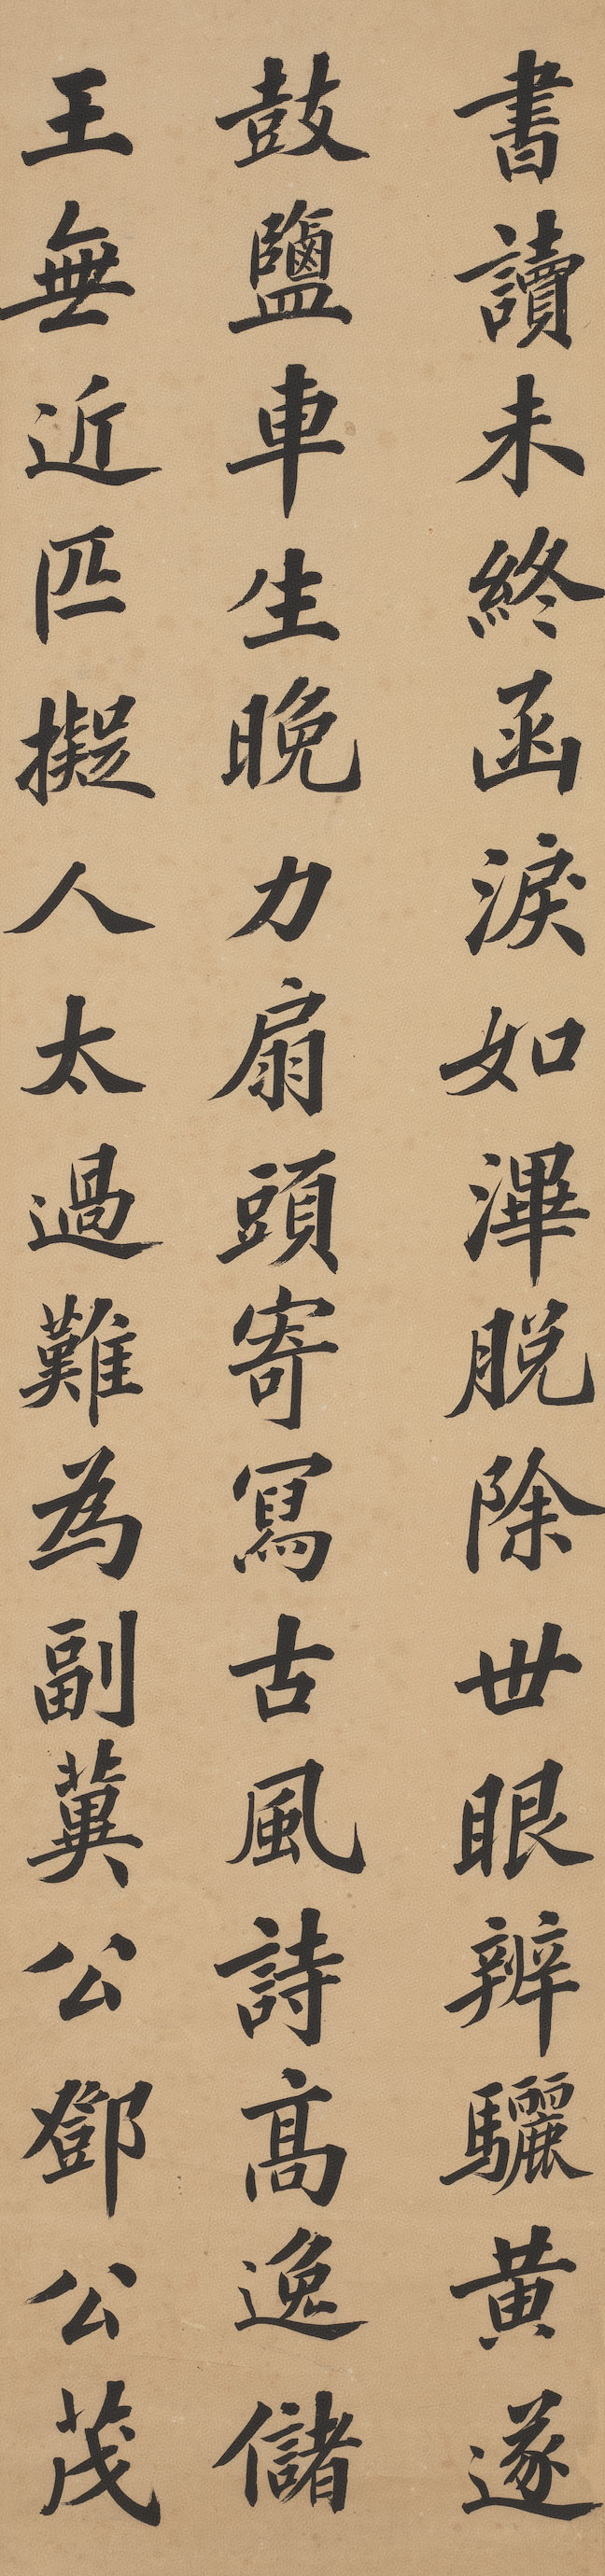 書讀未終函淚如滭脫除世眼辨驪黃遂
鼓鹽車生晚力扇頭寄寫古風詩高逸儲
王無近匹擬人太過難為副冀公鄧公茂